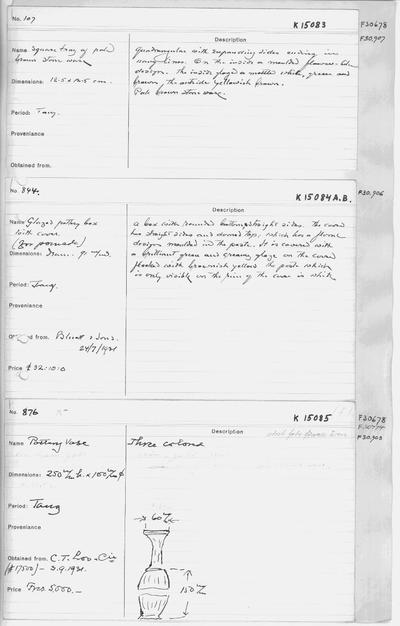 No. 107
K 15083
F30678
F30,907
Description
Name Square tray of pale
brown stone ware
Dimensions: 12.5 x 12.5 cm.
Period: Tang.
Provenience
Obtained from.
Quadrangular with expanding sides ending in
wavy lines. On the inside a moulded flower-like
design. The inside glazed a mottled white, green and
brown, the outside yellowish brown.
Pale brown stone ware.
No. 844.
K 15084 A.B.
F30,906
Description
Name Glazed pottery box
with cover.
(For pomade)
Dimensions: Diam.
Period: Tang.
Provenience
from. Bluett & Sons.
24/7/1931
Price £ 32:10:0
a box with rounded bottom, straight sides. The cover
has straight sides and domed top, which has a floral
design moulded in the paste. It is covered with
a brilliant green and creamy glaze on the cover
flecked with brownish yellow the paste which
is only visible on the rim of the cover is white
No. 876
K 15085
F30678
F30,903
Description
Name Pottery Vase
Three colored
Dimensions: 250 m/m h. x 100 m/m ϕ
Period: Tang
Provenience
Obtained from. C.T. Loo - Cie
(#17500) - 3.9.1931.
Price Frcs. 5,000.-
60 m/m
150 m/m